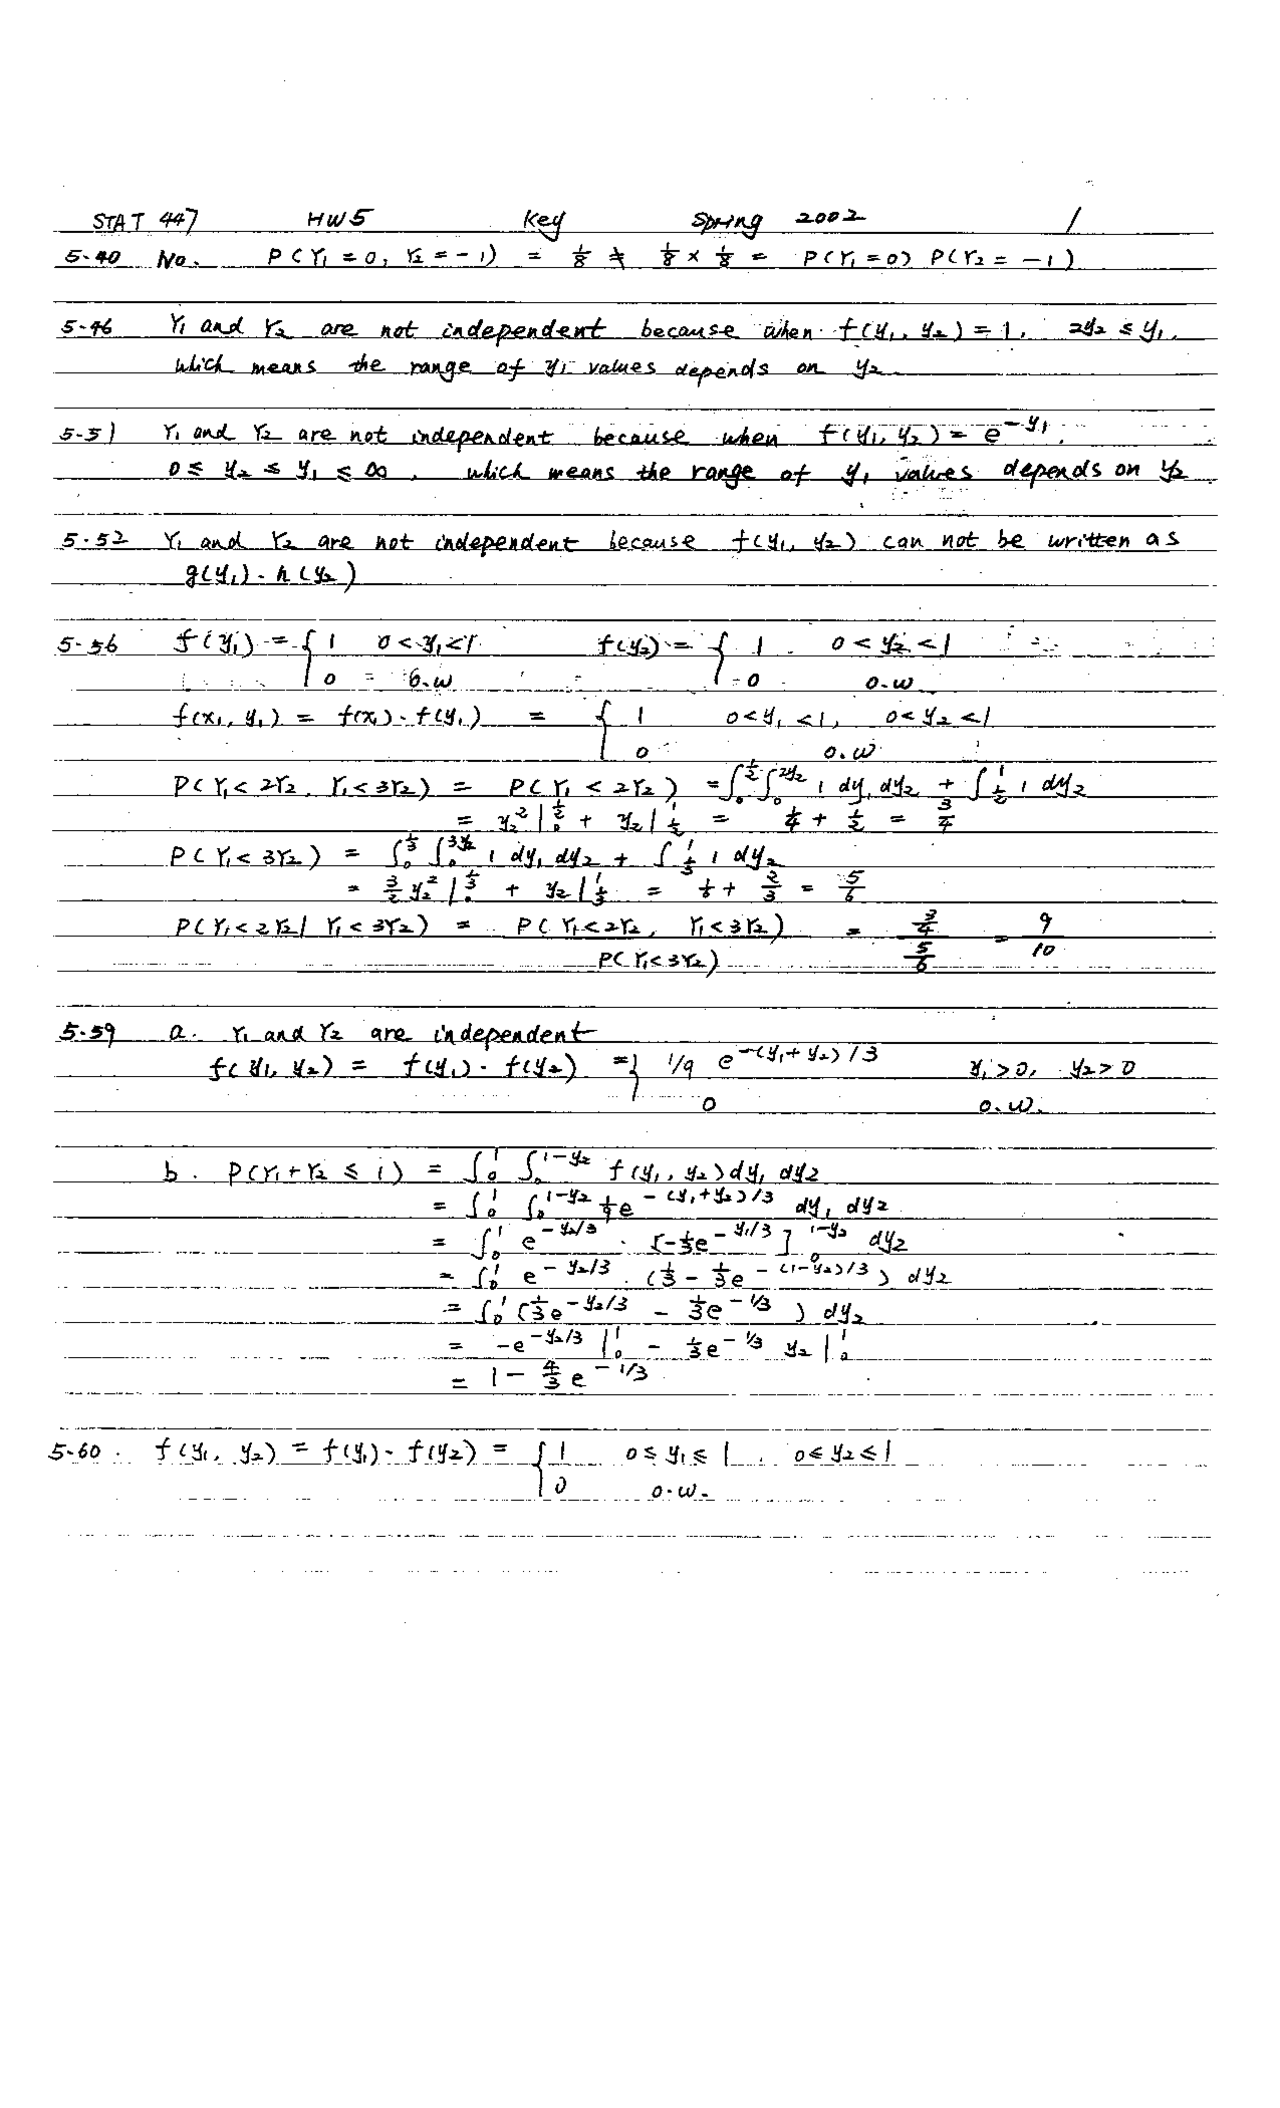 STAT 447 HW5 Key Spring 2002 1
5-40 No. P(Y₁ = 0, Y₂ = -1) = 1/8 ≠ 1/8 × 1/8 = P(Y₁=0) P(Y₂ = -1)
5-46 Y₁ and Y₂ are not independent because when f(y₁, y₂) = 1, 2y₂ ≤ y₁,
which means the range of y₁ values depends on y₂
5-51 Y₁ and Y₂ are not independent because when f(y₁, y₂) = e^{-y₁},
0 ≤ y₂ ≤ y₁ ≤ ∞, which means the range of y₁ values depends on y₂
5-52 Y₁ and Y₂ are not independent because f(y₁, y₂) can not be written as
g(y₁) · h(y₂)
5-56 f(y₁) = { 1 0 < y₁ < 1 f(y₂) = { 1 0 < y₂ < 1
0 o.w 0 o.w
f(x₁, y₁) = f(x₁) · f(y₁) = { 1 0 < y₁ < 1, 0 < y₂ < 1
0 o.w
P(Y₁ < 2Y₂, Y₁ < 3Y₂) = P(Y₁ < 2Y₂) = ∫₀^{1/2} ∫₀^{2y₂} 1 dy₁ dy₂ + ∫_{1/2}^{1} 1 dy₂
= y₂² |₀^{1/2} + y₂ |_{1/2}^{1} = 1/4 + 1/2 = 3/4
P(Y₁ < 3Y₂) = ∫₀^{1/3} ∫₀^{3y₂} 1 dy₁ dy₂ + ∫_{1/3}^{1} 1 dy₂
= 3/2 y₂² |₀^{1/3} + y₂ |_{1/3}^{1} = 1/6 + 2/3 = 5/6
P(Y₁ < 2Y₂ | Y₁ < 3Y₂) = P(Y₁ < 2Y₂, Y₁ < 3Y₂) = 3/4 = 9
P(Y₁ < 3Y₂) 5/6 10
5-59 a. Y₁ and Y₂ are independent
f(y₁, y₂) = f(y₁) · f(y₂) = { 1/9 e^{-(y₁+y₂)/3} y₁ > 0, y₂ > 0
0 o.w.
b. P(Y₁+Y₂ ≤ 1) = ∫₀¹ ∫₀^{1-y₂} f(y₁, y₂) dy₁ dy₂
= ∫₀¹ ∫₀^{1-y₂} 1/9 e^{-(y₁+y₂)/3} dy₁ dy₂
= ∫₀¹ e^{-y₂/3} · [-1/3 e^{-y₁/3}]₀^{1-y₂} dy₂
= ∫₀¹ e^{-y₂/3} · (1/3 - 1/3 e^{-(1-y₂)/3}) dy₂
= ∫₀¹ (1/3 e^{-y₂/3} - 1/3 e^{-1/3}) dy₂
= -e^{-y₂/3} |₀¹ - 1/3 e^{-1/3} y₂ |₀¹
= 1 - 4/3 e^{-1/3}
5-60. f(y₁, y₂) = f(y₁) · f(y₂) = { 1 0 ≤ y₁ ≤ 1, 0 ≤ y₂ ≤ 1
0 o.w.